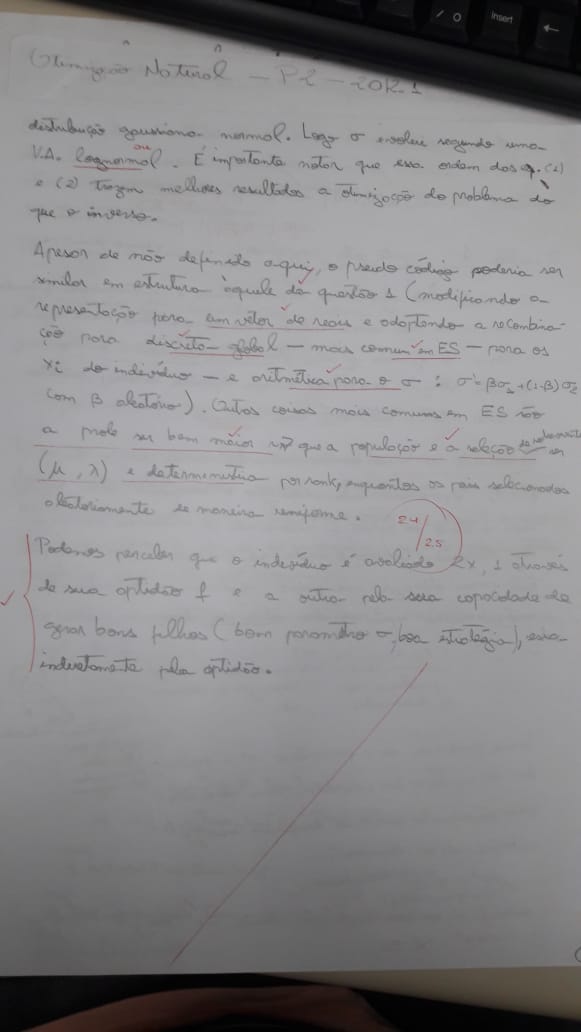 insert
Otimização Natural – P2 – 20
distribuição gaussiana normal. Logo σ evolui segundo uma
ou
V.A. lognormal. É importante notar que essa ordem dos
e (2) trazem melhores resultados a otimização do problema do
que o inverso.
Apesar de não definido aqui, o pseudo código poderia ser
similar em estrutura àquele da questão 1 (modificando a
representação para um vetor de reais e adotando a recombina-
ção para discreta global – mais comum em ES – para os
xi do indivíduo – e aritmética para o σ : σ' = βσ1 + (1-β)σ2
com β aleatório). Outras coisas mais comuns em ES são
a prole ser bem maior que a população e a seleção ser
(μ, λ) e determinística por rank, enquantos os pais selecionados
aleatoriamente de maneira uniforme.
24/25
Podemos perceber que o indivíduo é avaliado 2x, 1 através
de sua aptidão f e a outra pela sua capacidade de
gerar bons filhos (bom parâmetro σ, boa estratégia), essa
indiretamente pela aptidão.